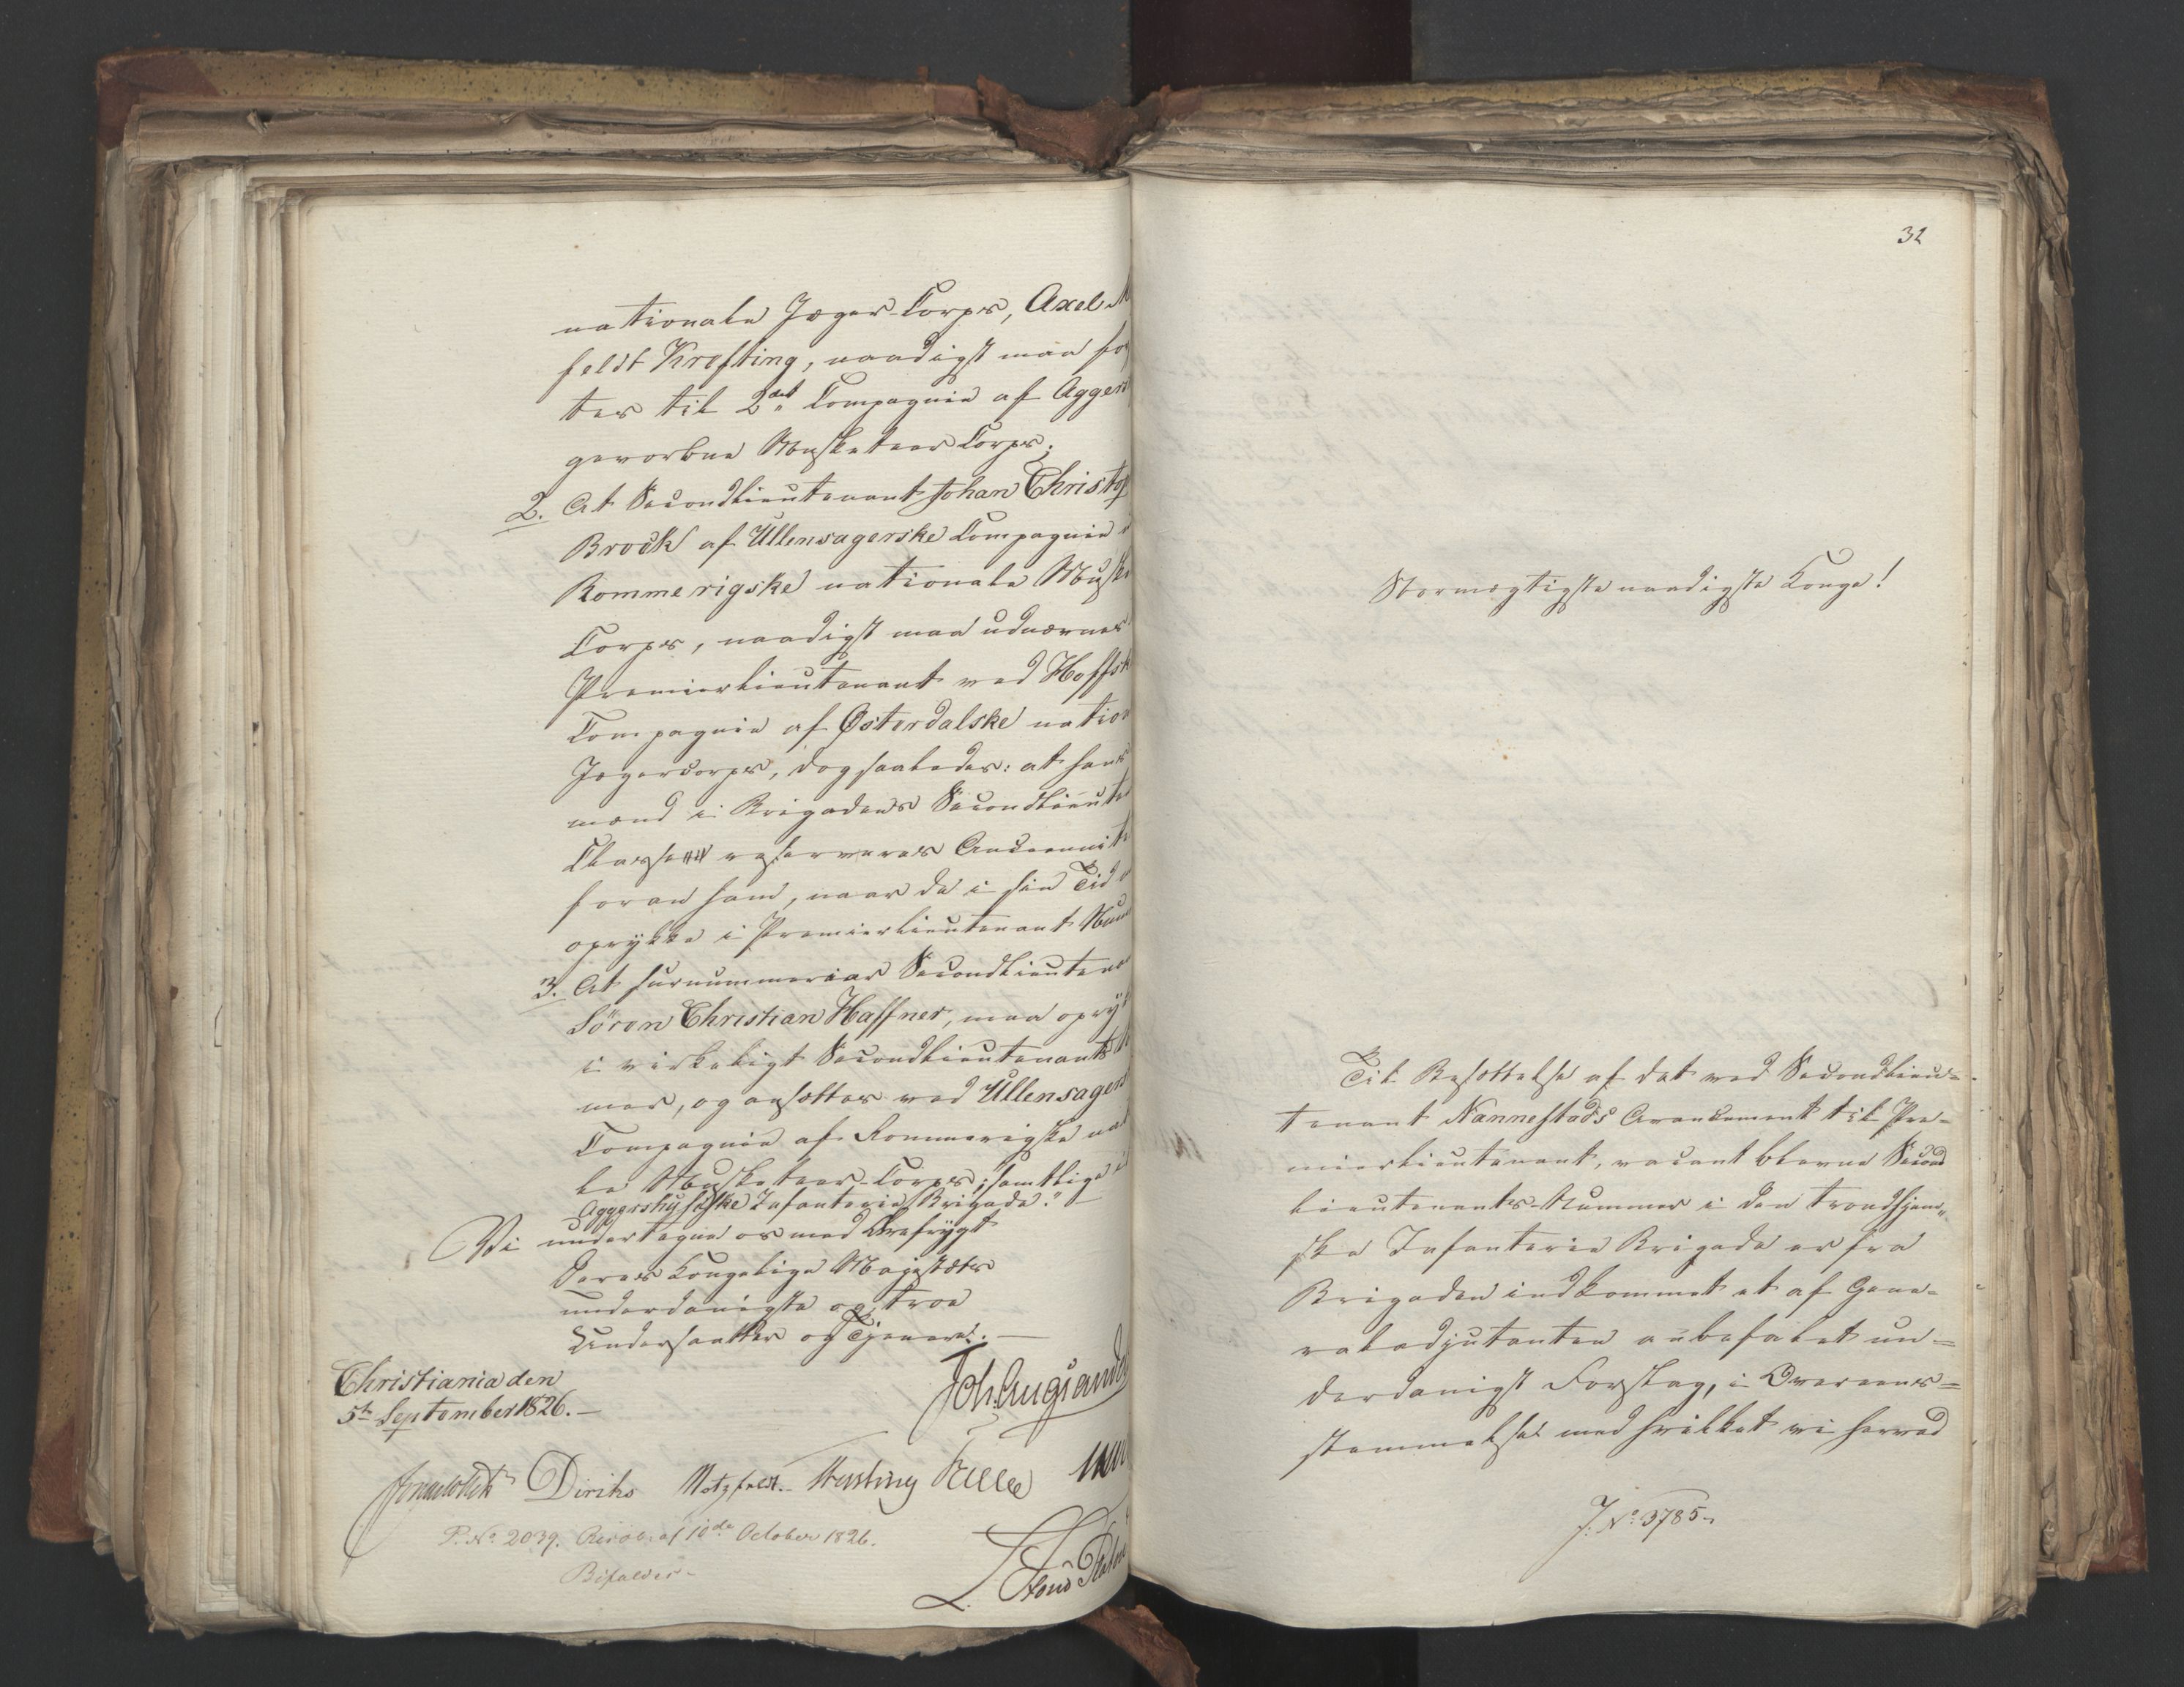 nationale Jæger-Corps, Axel M
feldt Krefting, naadigst maa for
tes til 2det Compagnie af Agger
gevorbne Musketeer Corps;
2. At Secondlieutenant Johan Christop
Brock af Ullensagerske Compagnie
Rommerigske nationale Muske
Corps, naadigst maa udnævnes
Premierlieutenant ved Hoffsk
Compagnie af Østerdalske nation
Jægercorps, dog saaledes: at hans
mænd i Brigadens Secondlieuten
Classe reserveres Anciennite
foran ham, naar de i sin Tid
oprykke i Premierlieutenant Num
3. At surnummerair Secondlieutena
Sören Christian Haffner, maa opryk
i virkeligt Secondlieutenants
mer, og ansættes ved Ullensagers
Compagnie af Rommerigske nat
le Musketeer-Corps; samtlige i
Aggershusiske Infanterie Brigade."
Vi undertegne os med Ærefrygt
Deres Kongelige Majestæts
underdanigste og troe
Undersaatter og Tjenere.
Christiania den
5te September 1826.
Diriks Motzfeldt
P. No. 2039. Resol. af 10de October 1826.
Bifaldes.
32
Stormægtigste naadigste Konge!
Til Besættelse af det ved Secondlieu=
tenant Nannestads Avancement til Pre=
mierlieutenant, vacant blevne Second
lieutenants-Nummer i den trondhjem„
ske Infanterie Brigade er fra
Brigaden indkommet et af Gene=
raladjutanten anbefalet un=
derdanigst Forslag, i Overeens=
stemmelse med hvilket vi herved
J. No. 3785.